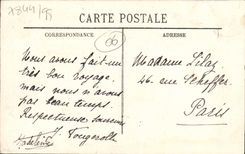 7844/95
CARTE POSTALE
CORRESPONDANCE
ADRESSE
66
Nous avons fait un
très bon voyage.
mais nous n'avons
pas beau temps.
Respectueux souvenirs
J. Fougerolle
Madame Lilaz
46 rue Scheffer
Paris